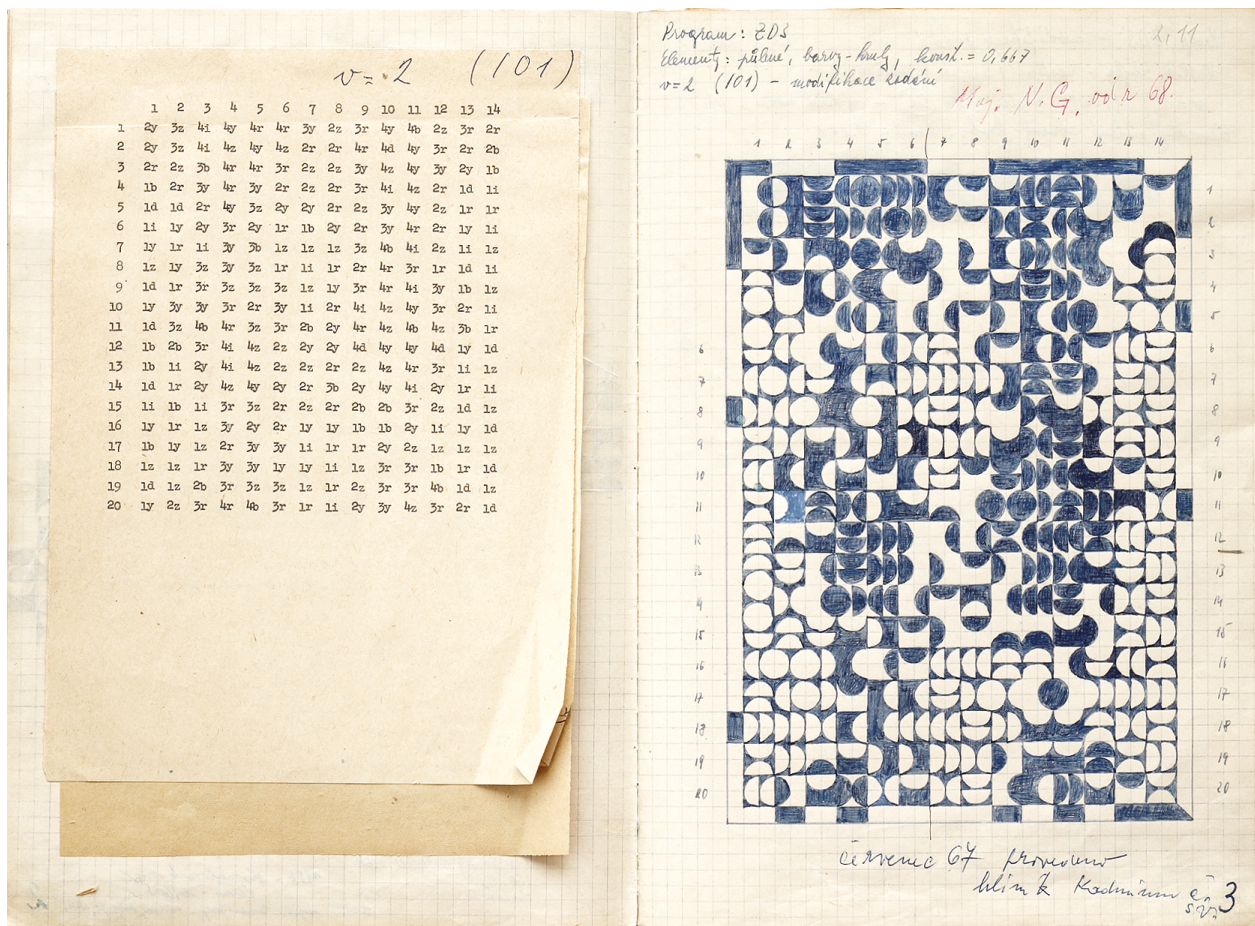 v=2 (101)
1 2 3 4 5 6 7 8 9 10 11 12 13 14
1 2y 3z 4i 4y 4r 4r 3y 2z 3r 4y 4b 2z 3r 2r
2 2y 3z 4i 4z 4y 4z 2r 2r 4r 4d 4y 3r 2r 2b
3 2r 2z 3b 4r 4r 3r 2z 2z 3y 4z 4y 3y 2y 1b
4 1b 2r 3y 4r 3y 2r 2z 2r 3r 4i 4z 2r 1d 1i
5 1d 1d 2r 4y 3z 2y 2y 2r 2z 3y 4y 2z 1r 1r
6 1i 1y 2y 3r 2y 1r 1b 2y 2r 3y 4r 2r 1y 1i
7 1y 1r 1i 3y 3b 1z 1z 1z 3z 4b 4i 2z 1i 1z
8 1z 1y 3z 3y 3z 1r 1i 1r 2r 4r 3r 1r 1d 1i
9 1d 1r 3r 3z 3z 3z 1z 1y 3r 4r 4i 3y 1b 1z
10 1y 3y 3y 3r 2r 3y 1i 2r 4i 4z 4y 3r 2r 1i
11 1d 3z 4b 4r 3z 3r 2b 2y 4r 4z 4b 4z 3b 1r
12 1b 2b 3r 4i 4z 2z 2y 2y 4d 4y 4y 4d 1y 1d
13 1b 1i 2y 4i 4z 2z 2z 2r 2z 4z 4r 3r 1i 1z
14 1d 1r 2y 4z 4y 2y 2r 3b 2y 4y 4i 2y 1r 1i
15 1i 1b 1i 3r 3z 2r 2z 2r 2b 2b 3r 2z 1d 1z
16 1y 1r 1z 3y 2y 2r 1y 1y 1b 1b 2y 1i 1y 1d
17 1b 1y 1z 2r 3y 3y 1i 1r 1r 2y 2z 1z 1z 1z
18 1z 1z 1r 3y 3y 1y 1y 1i 1z 3r 3r 1b 1r 1d
19 1d 1z 2b 3r 3z 3z 1z 1r 2z 3r 3r 4b 1d 1z
20 1y 2z 3r 4r 4b 3r 1r 1i 2y 3y 4z 3r 2r 1d
2,11
Program: ZDS
Elementy: půlené, barvy-kruhy, konst. = 0,667
v=2 (101) - modifikace zadání
Maj. N.G. od r 68.
1 2 3 4 5 6 7 8 9 10 11 12 13 14
1
2
3
4
5
6 6
7 7
8 8
9 9
10 10
11 11
12 12
13 13
14 14
15 15
16 16
17 17
18 18
19 19
20 20
červenec 67 provedeno
3